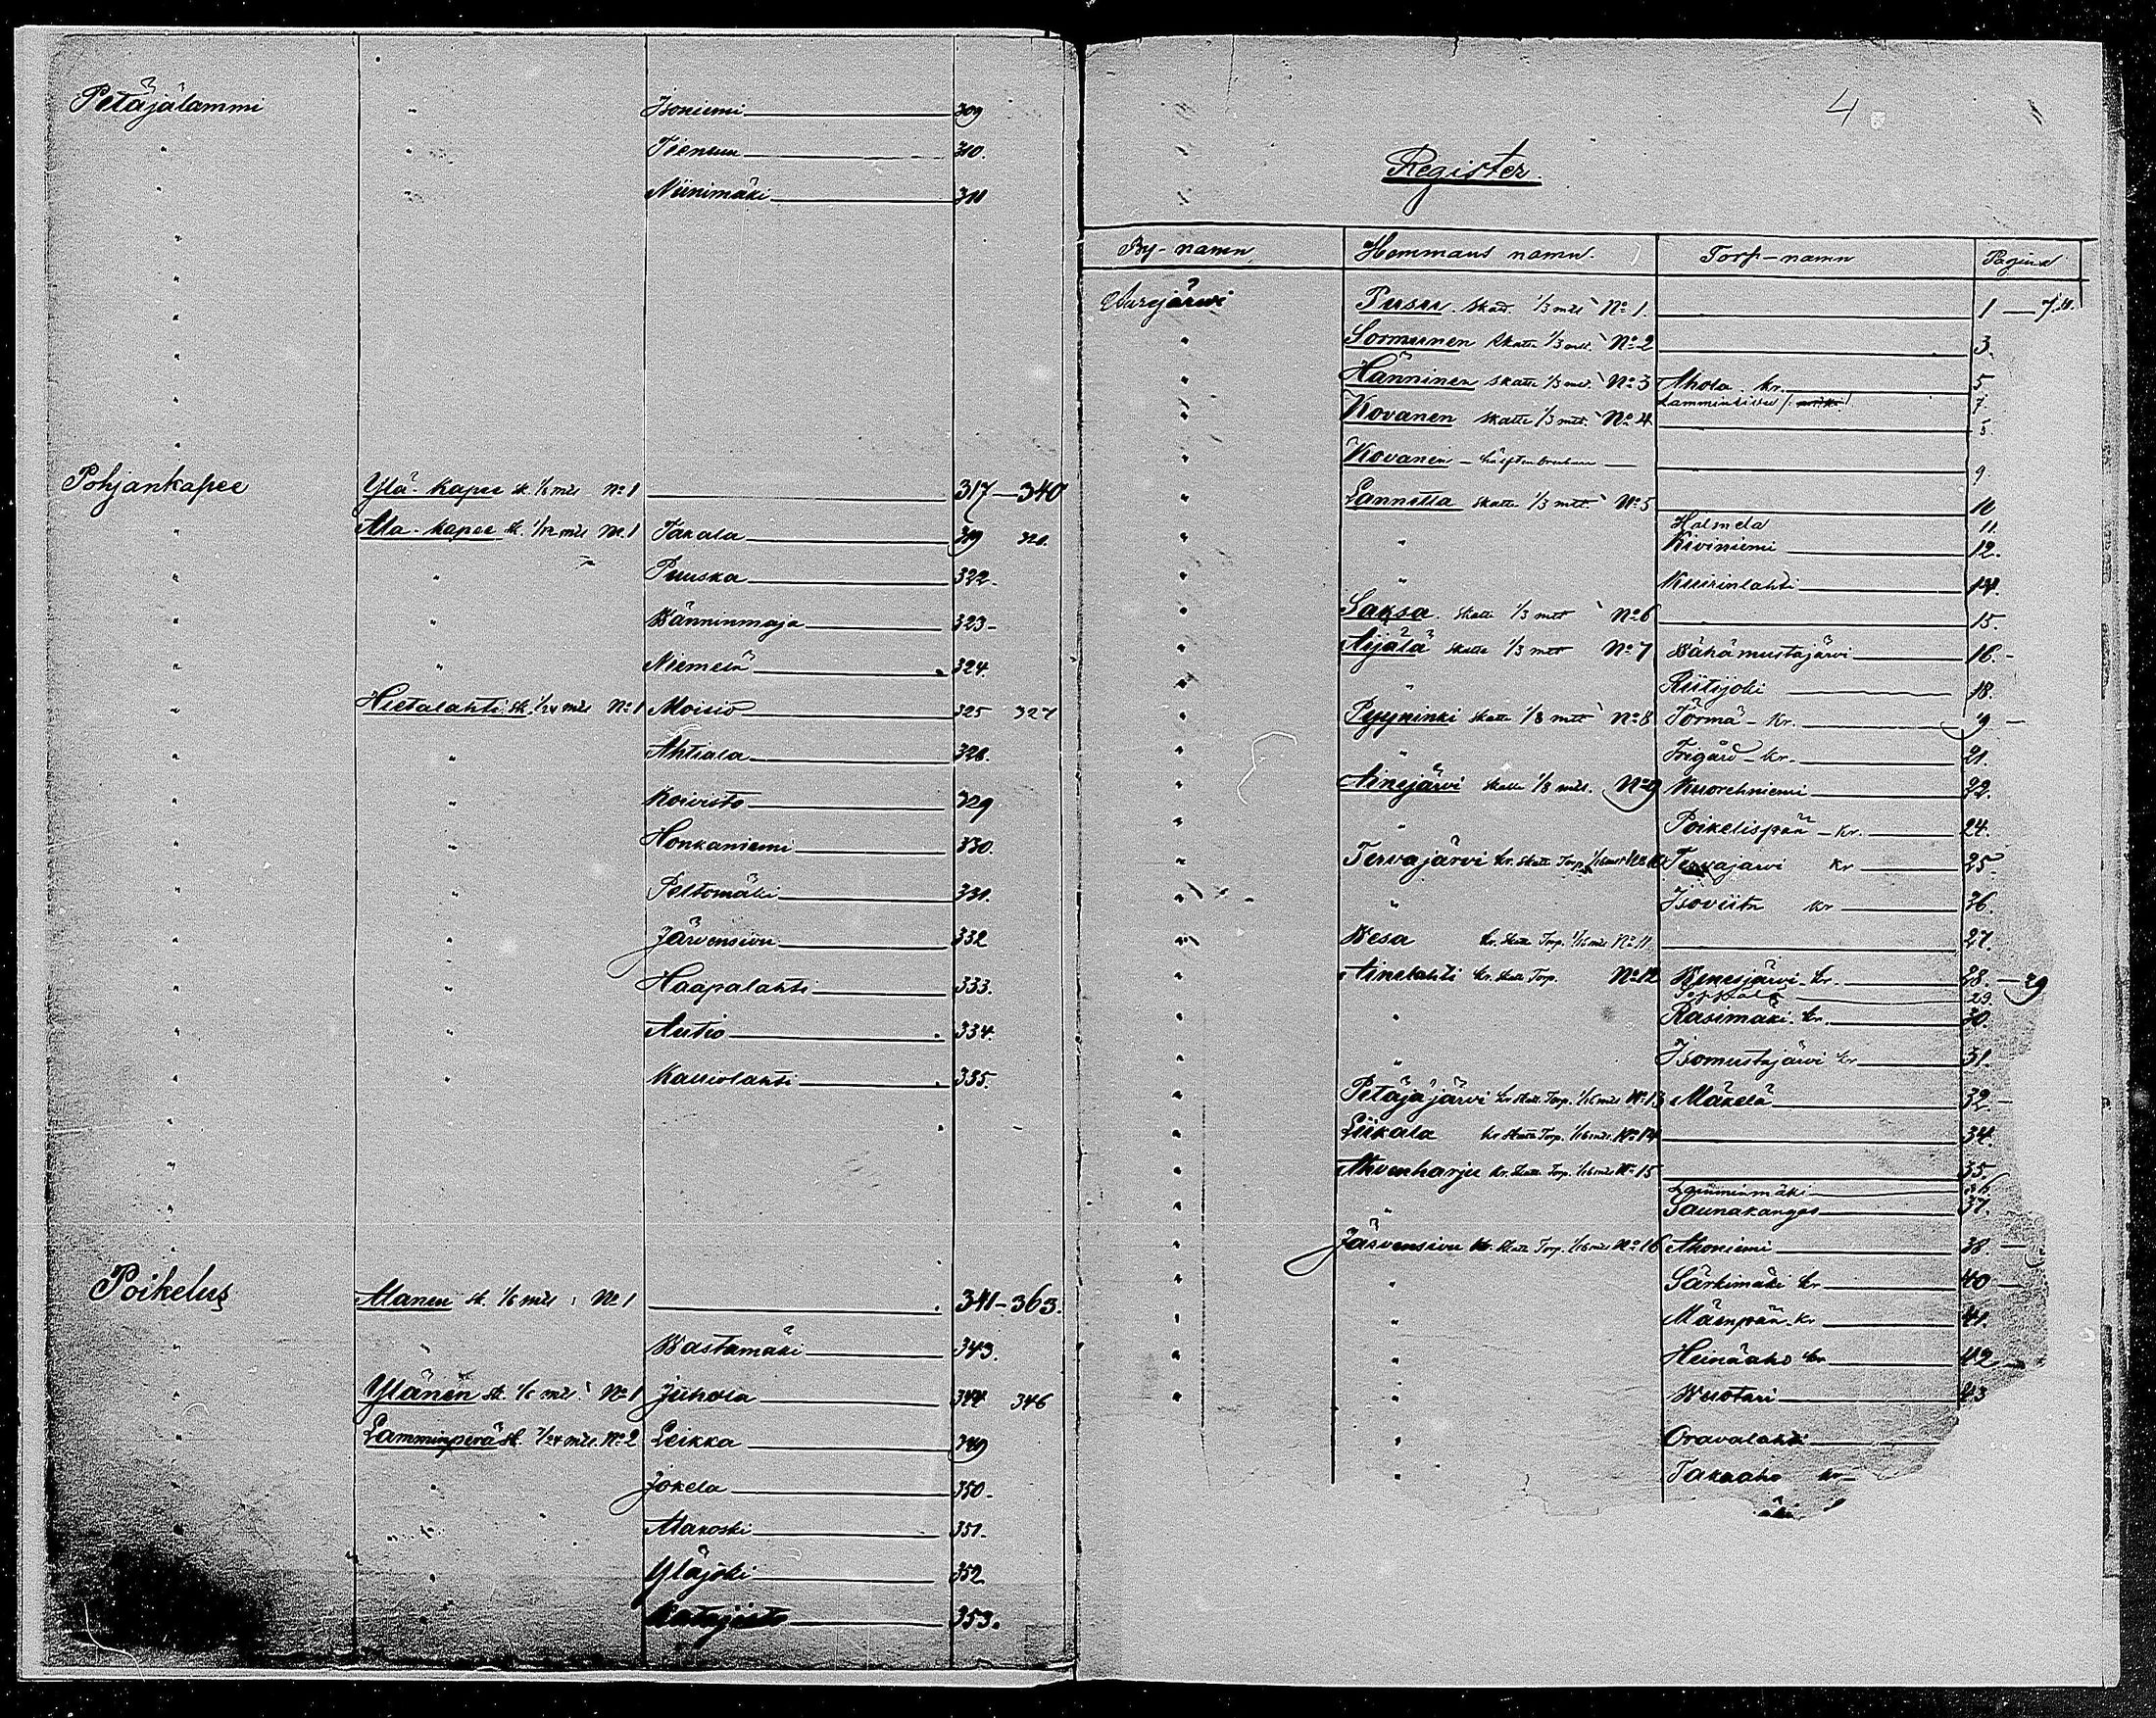 Petäjälammi " Isoniemi 309
" " Tienuu 310.
" " Niinimäki 311
Pohjankapee Ylä-kapee sk. 1/6 mtl No 1 317—340
" Ala-kapee sk. 1/12 mtl No. 1 Takala 319 321.
" " Puuska 322.
" " Wänninmaja 323-
" " Niemelä 324.
" Hietalahti sk. 1/24 mtl No 1 Moisio 325 327
" " Ahtiala 328.
" " Koivisto 329
" " Honkaniemi 330.
" " Peltomäki 331.
" " Järvensivu 332
" " Haapalahti 333.
" " Autio 334.
" " Kalliolahti 335.
Poikelus Alanen sk. 1/6 mtl No 1 341-363.
" " Wastamäki 343.
" Ylänen sk. 1/6 mtl No 1 Juhola 344 346
" Lamminperä sk. 1/24 mtl. No 2 Leikka 349
" Jokela 350-
" Alakoski 351-
" Yläjoki 352
" Katajisto 353.
4
Register
By-namn Hemmans namn. Torp-namn Pagina
Aurejärvi Pusu skat. 1/3 mtl No 1. 1—
" Sormunen skatte 1/3 mtl. No 2 3.
" Hänninen skatte 1/3 mtl. No 3 Ahola. kr. 5
7.
" Kovanen skatte 1/3 mtl. No 4
" Kovanen 9
" Lannetta skatte 1/3 mtl. No 5 10
Holmela 11.
" " Kiviniemi 12.
" " Kuirinlahti 14.
" Saksa skatte 1/3 mtl No 6 15.
" Äijälä skatte 1/3 mtl No 7 Wähämustajärvi 16.-
" " Riitijoki 18.
" Pyyninki skatte 1/8 mtl No 8 Törmä - kr. 19 —
" " Frigård - kr. 21.
" Ainejärvi skatte 1/8 mtl. No 9 Kuorehniemi 22.
" " Poikelispää - kr. 24.
" Tervajärvi kr. skatte Torp 1/16 mtl No 10 Tervajärvi kr 25
" " Isoviita kr 36.
" Wesa kr. skatte Torp. 1/16 mtl No 11. 27.
" Ainelahti kr. skatte Torp. No 12 Kenesjärvi kr. 28.—29
29.
" " Rasimäki kr. 30.
" " Isomustajärvi kr 31.
" Petäjäjärvi kr skatte Torp. 1/16 mtl No 13 Mäkelä 32 —
" Liikala kr skatte Torp. 1/16 mtl. No 14 34.
" Ahvenharju kr. skatte Torp. 1/16 mtl No 15 35.
Lamminmäki 36
" " Saunakangas 37.
" Järvensivu kr. skatte Torp. 1/16 mtl No 16 Ahoniemi 38 —
" " Särkimäki kr 40 —
" " Mäenpää kr 41.
" " Heinäaho kr 42
" " Wuotari 43
" Oravalahti
" Takaaho kr
äki